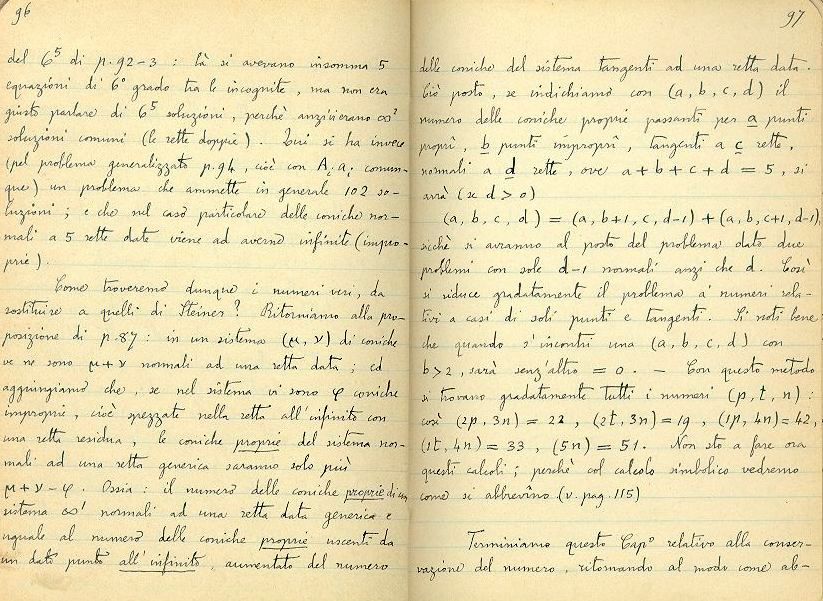 96
del 6⁵ di p. 92-3 : là si avevano insomma 5
equazioni di 6° grado tra le incognite, ma non era
giusto parlare di 6⁵ soluzioni, perchè anzi vi erano ∞²
soluzioni comuni (le rette doppie). Qui si ha invece
(pel problema generalizzato p. 94, cioè con Aᵢ aᵢ comun-
que) un problema che ammette in generale 102 so-
luzioni ; e che nel caso particolare delle coniche nor-
mali a 5 rette date viene ad averne infinite (impro-
prie).
Come troveremo dunque i numeri veri, da
sostituire a quelli di Steiner? Ritorniamo alla pro-
posizione di p. 87 : in un sistema (μ, ν) di coniche
ve ne sono μ+ν normali ad una retta data ; ed
aggiungiamo che, se nel sistema vi sono φ coniche
improprie, cioè spezzate nella retta all'infinito con
una retta residua, le coniche proprie del sistema nor-
mali ad una retta generica saranno solo più
μ+ν-φ. Ossia : il numero delle coniche proprie di un
sistema ∞¹ normali ad una retta data generica è
uguale al numero delle coniche proprie uscenti da
un dato punto all'infinito, aumentato del numero
97
delle coniche del sistema tangenti ad una retta data.
Ciò posto, se indichiamo con (a, b, c, d) il
numero delle coniche proprie passanti per a punti
proprî, b punti improprî, tangenti a c rette,
normali a d rette, ove a+b+c+d = 5, si
avrà (se d > 0)
(a, b, c, d) = (a, b+1, c, d-1) + (a, b, c+1, d-1),
sicchè si avranno al posto del problema dato due
problemi con sole d-1 normali anzi che d. Così
si riduce gradatamente il problema a' numeri rela-
tivi a casi di soli punti e tangenti. Si noti bene
che quando s'incontri una (a, b, c, d) con
b>2, sarà senz'altro = 0. — Con questo metodo
si trovano gradatamente tutti i numeri (p, t, n) :
così (2p, 3n) = 22, (2t, 3n) = 19, (1p, 4n) = 42,
(1t, 4n) = 33, (5n) = 51. Non sto a fare ora
questi calcoli ; perchè col calcolo simbolico vedremo
come si abbrevino (v. pag. 115)
Terminiamo questo Capº relativo alla conser-
vazione del numero, ritornando al modo come ab-